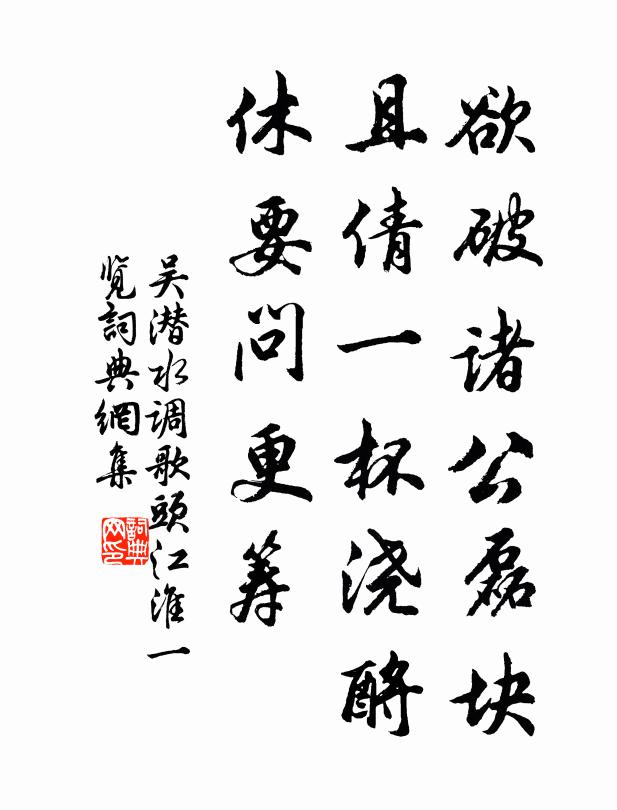 欲破诸公磊块
且倩一杯浇酹
休要问更筹
吴潜水调歌頭江淮一
览詞典網集
詞典
网印